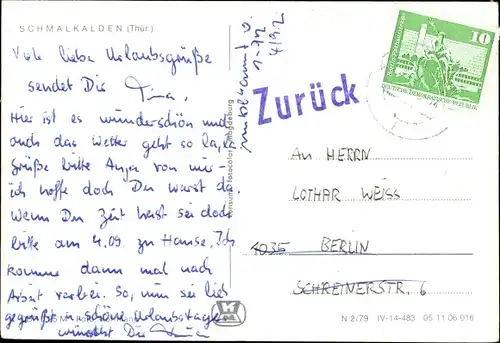 SCHMALKALDEN (Thür.)
Viele liebe Urlaubsgrüße
sendet Dir Tina.
Hier ist es wunderschön und
auch das Wetter geht so la, la.
Grüße bitte Anja von mir -
ich hoffe doch Du warst da.
Wenn Du Zeit hast sei doch
bitte am 4.09. zu Hause. Ich
komme dann mal nach
Arbeit vorbei. So, nun sei lieb
gegrüßt u. schöne Urlaubstage
wünscht Dir Tina
unbekannt v.
4/9.2
Zurück
10
DEUTSCHE DEMOKRATISCHE REPUBLIK
AN HERRN
LOTHAR WEISS
4035 BERLIN
SCHREINERSTR. 6
N 2/79 IV-14-483 05 11 06 016